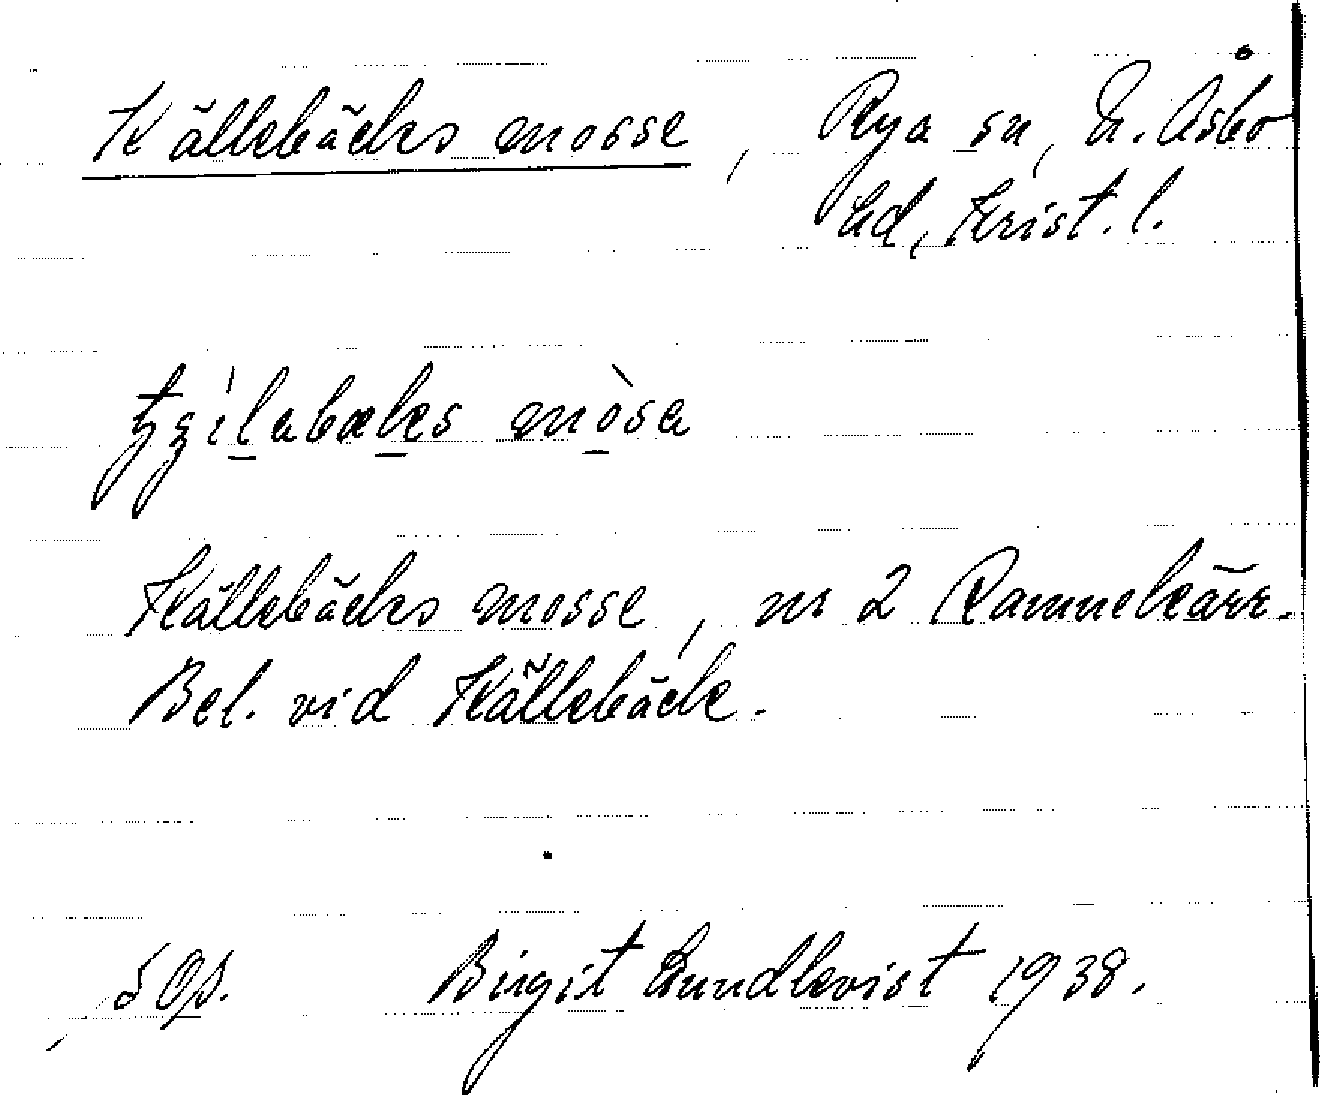 Källebäcks mosse, Rya sn, N. Åsbo
hd, Krist. l.
Källebäcks mosse, nr 2 Rammekärr.
Bel. vid Källebäck.
Birgit Lundkvist 1938.